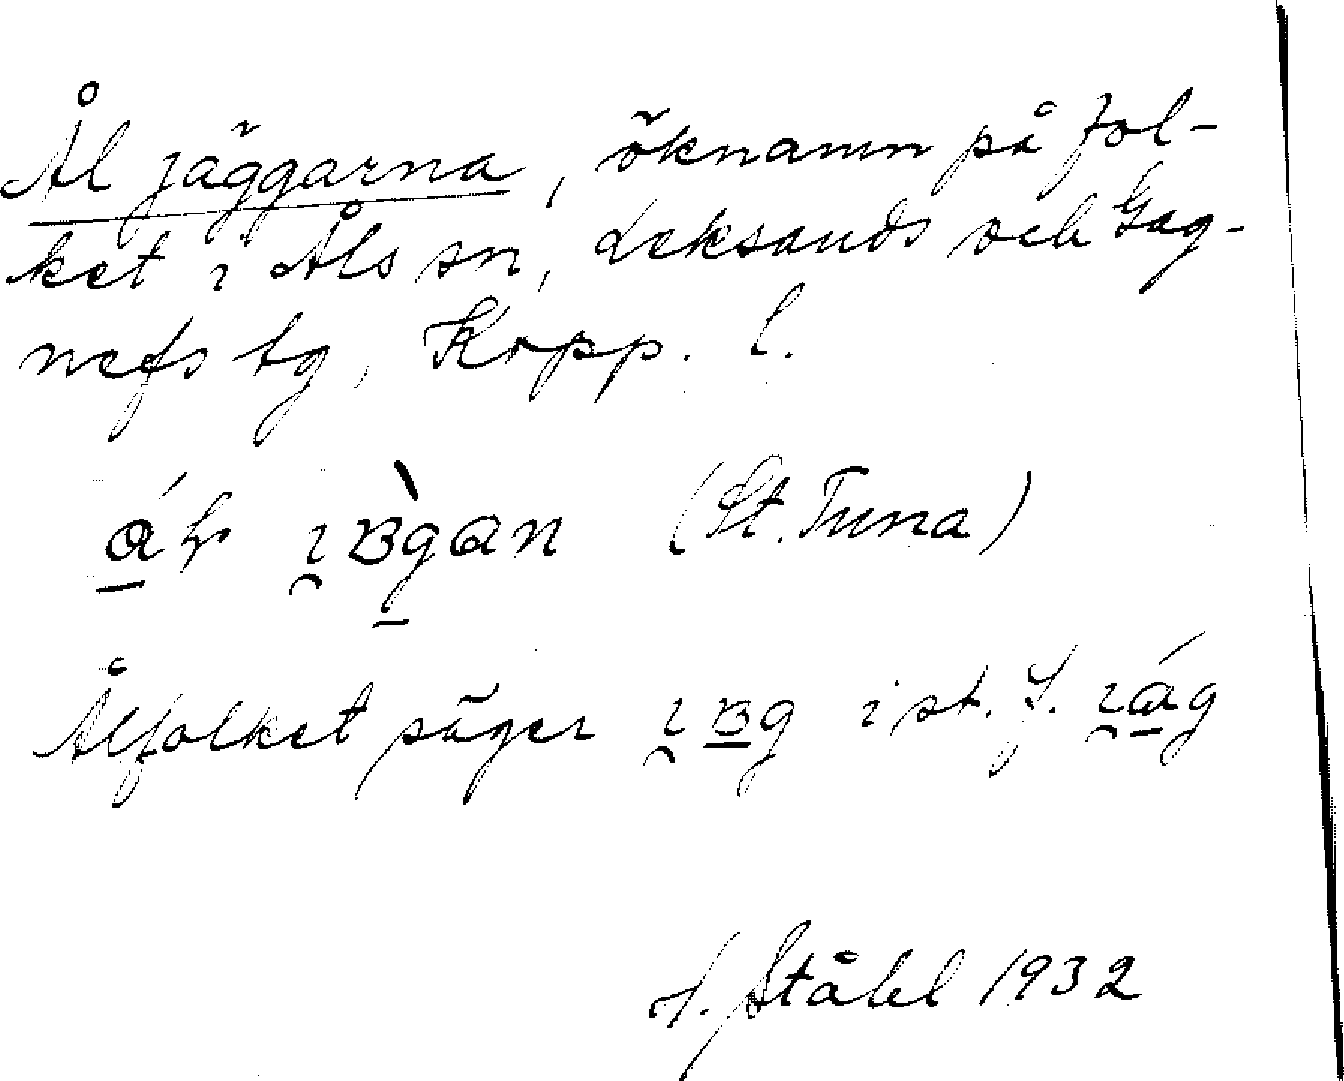 Ål jäggarna, öknamn på fol-
ket i Åls sn, Leksands och Gag-
nefs tg, Kopp. l.
(St. Tuna)
Ålfolket säger i st. f.
H. Ståhl 1932